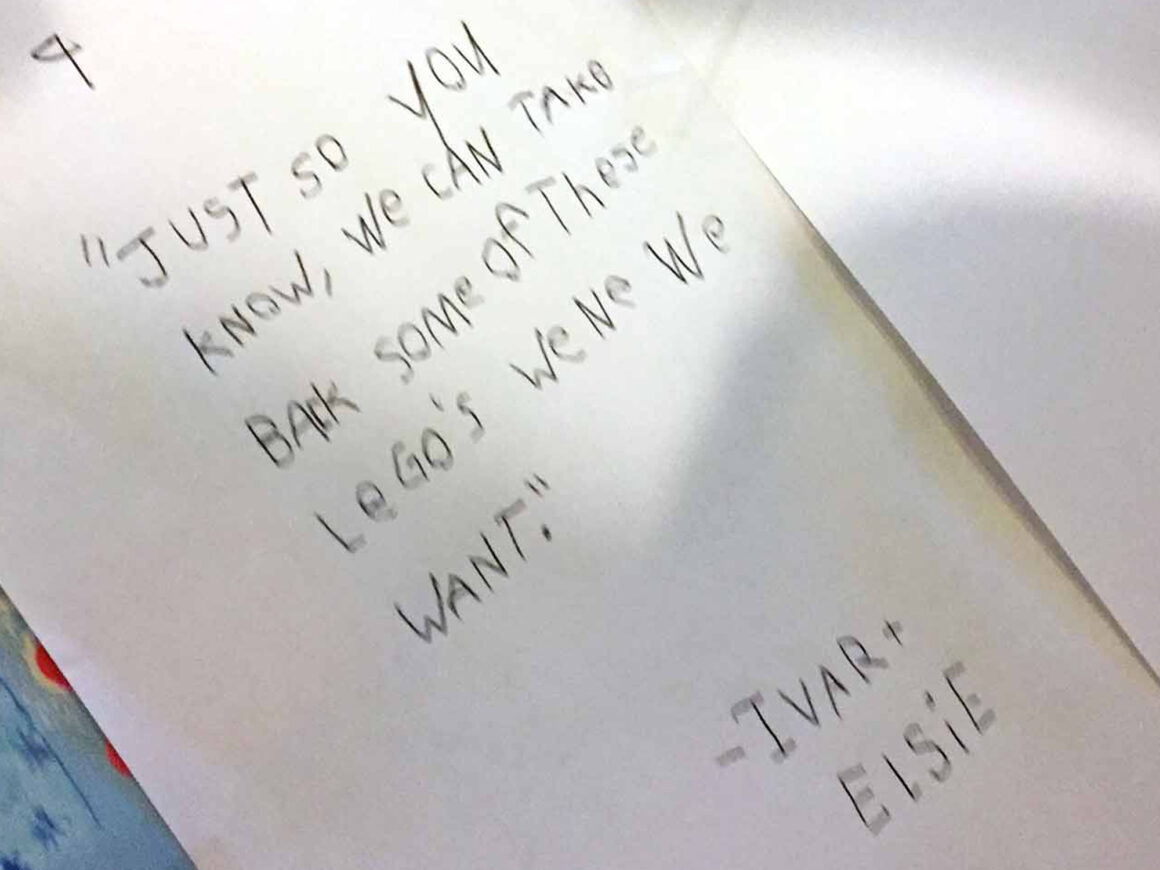 4
"JUST SO YOU
KNOW, We CAN TAKe
BACK SOMe Of These
LeGO's WeNe We
WANT."
-IVAR +
ELSiE